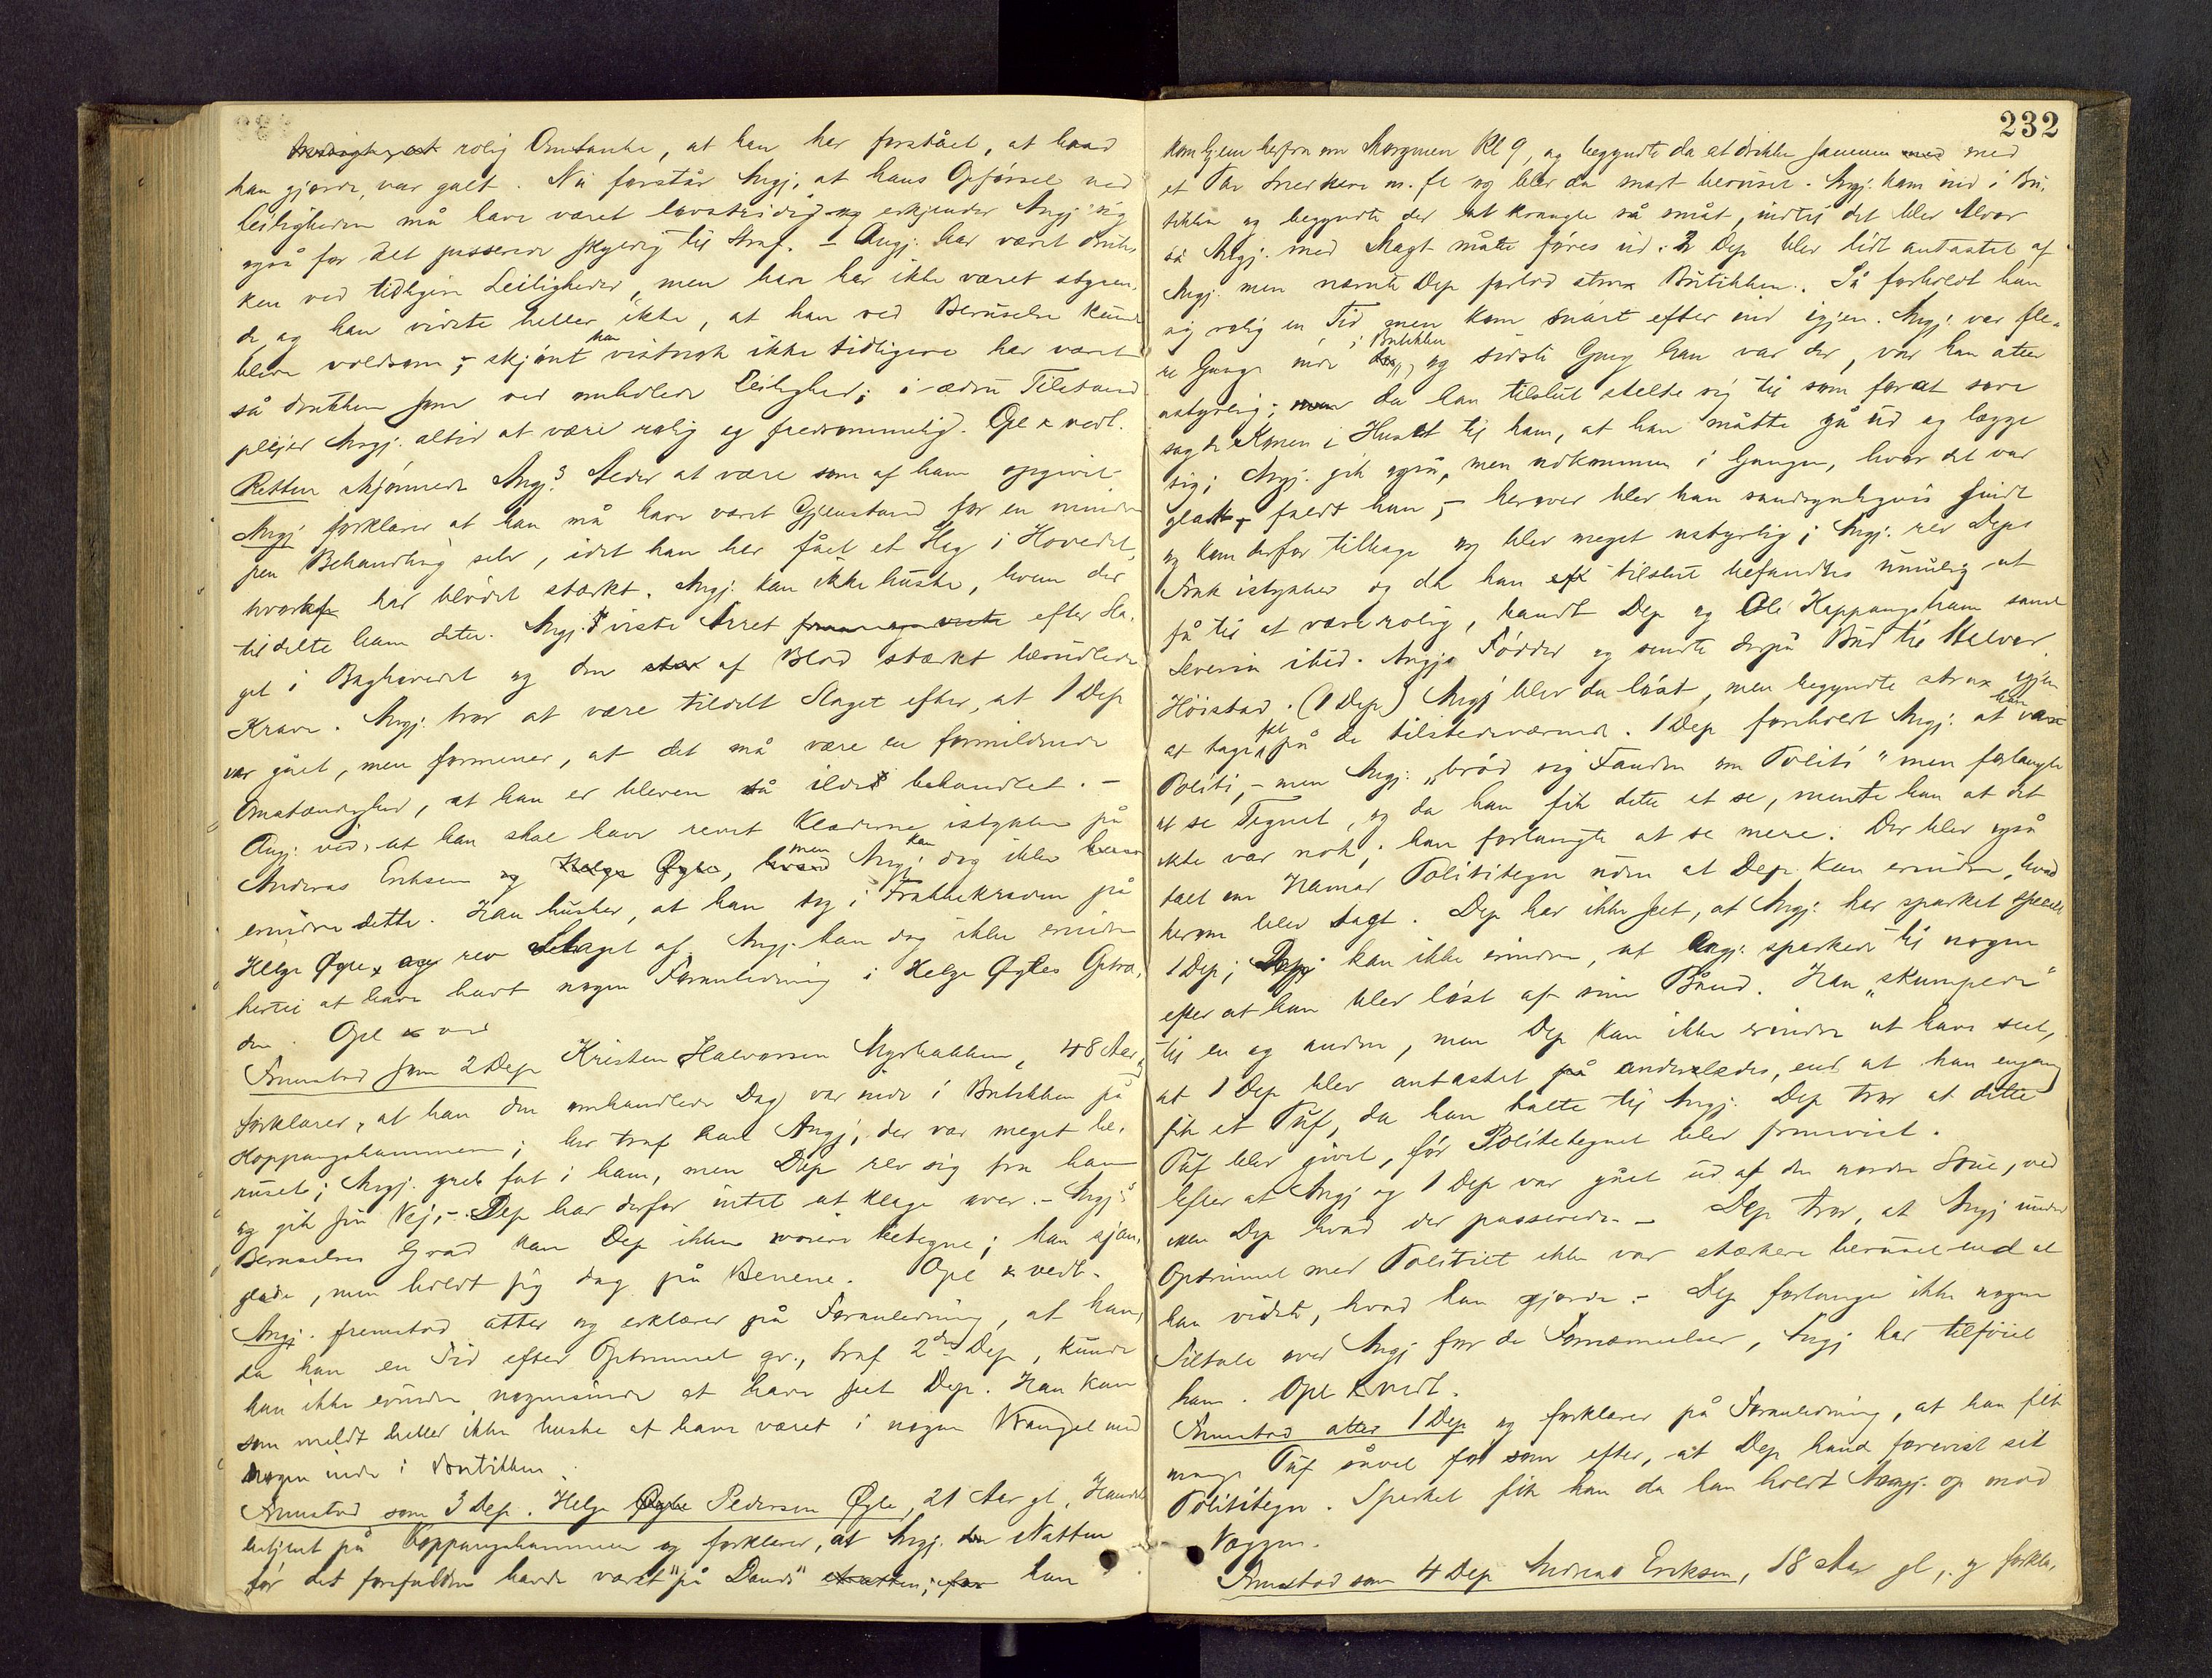 rolig Omtanke, at han har forstået, at hvad
han gjorde, var galt. Nu forstår Angj. at hans Opførsel ved
Leiligheden må have været lovstridig og erkjender Angj. sig
også for det passerede skyldig til Straf. - Angj. har været druk-
ken ved tidligere Leiligheder, men han har ikke været styren-
de, og han vidste heller ikke, at han ved Beruselse kunde
blive voldsom; - skjønt han vistnok ikke tidligere har været
så drukken som ved omhandlede Leilighed; i ædru Tilstand
pleier Angj. altid at være rolig og fredsommelig. Opl & vedt.
Retten skjønnede Angj's Alder at være som af ham opgivet
Angj forklarer at han må have været Gjenstand for en mindre
pen Behandling selv, idet han har fået et Hug i Hovedet,
hvoraf har blødet stærkt. Angj. kan ikke huske, hvem der
tildelte ham dette. Angj. viste Arret efter Sla-
get i Baghovedet og den af Blod stærkt besudlede
Krave. Angj. tror at være tildelt Slaget efter, at 1 Dep
var gået, men formener, at det må være en formildende
Omstændighed, at han er bleven så ilde behandlet. -
Angj. ved, at han skal have revet Klæderne istykker på
Andreas Eriksen og Helge Øgle, men Angj. kan dog ikke
erindre dette. Han husker, at han tog i Frakkekraven på
Helge Øgle, og rev Slaget af. Angj. kan dog ikke erindre
hertil at have havt nogen Foranledning i Helge Øgles Optræ-
den. Opl & ved
Fremstod som 2 Dep Kristen Halvorsen Myrbakken, 48 Aar,
forklarer, at han den omhandlede Dag var inde i Butikken på
Koppangshammeren; her traf han Angj., der var meget be-
ruset; Angj. greb fat i ham, men Dep rev sig fra ham
og gik sin Vej, - Dep har derfor intet at klage over. - Angj's
Beruselses Grad kan Dep ikke videre betegne; han sjan-
glede, men holdt sig dog på Benene. Opl & vedt.
Angj. fremstod atter og erklærer på Foranledning, at han,
da han en Tid efter Optrinnet gr., traf 2den Dep, kunde
han ikke erindre nogensinde at have seet Dep. Han kan
som meldt heller ikke huske at have været i nogen Krangel med
nogen inde i Butikken.
Fremstod som 3 Dep. Helge Øgle Pedersen Øgle, 21 Aar gl, Handels-
betjent på Koppangshammeren og forklarer, at Angj. den Natten
før det forefaldne havde været "på Dands" han
232
kom hjem herfra om Morgenen Kl 9, og begyndte da at drikke sammen med
et Par Snerkere m. fl og blev da snart beruset. Angj. kom ind i Bu-
tikken og begyndte der at krangle så småt, indtil det blev Alvor
så Angj. med Magt måtte føres ud. 2 Dep blev lidt antastet af
Angj. men nævnte Dep forlod strax Butikken. Så forholdt han
sig rolig en Tid men kom snart efter ind igjen. Angj. var fle-
re Gange inde i Butikken og sidste Gang han var der, var han atter
ustyrlig; da han tilslut stelte sig til som forat sove
sagde Konen i Huset til ham, at han måtte gå ud og lægge
sig; Angj. gik også, men udkommen i Gangen, hvor det var
glat, - faldt han, - herover blev han sandsynligvis sindt
og kom derfor tilbage og blev meget ustyrlig; Angj. rev Deps
Frak istykker og da han tilslut befandtes umulig at
få til at være rolig, bandt Dep og Ole Koppangsham samt
Severin ibid. Angjs Fødder og sendte derpå Bud til Halvor
Høistad. (1 Dep) Angj blev da løst, men begyndte strax igjen
at tage fat på de tilstedeværende. 1 Dep foreholdt Angj. at han var
Politi, - men Angj. "brød sig Fanden om Politi" men forlangte
at se Tegnet, og da han fik dette at se, mente han at det
ikke var nok; han forlangte at se mere. Der blev også
talt om Hamar Polititegn uden at Dep. kan erindre, hvad
herom blev sagt. Dep har ikke seet, at Angj. har sparket specielt
1 Dep; Dep kan ikke erindre, at Angj. sparkede til nogen
efter at han blev løst af sine Bånd. Han "skumpede"
til en og anden, men Dep kan ikke erindre at have seet,
at 1 Dep blev antastet på anderledes, end at han engang
fik et Puf, da han talte til Angj. Dep tror at dette
Puf blev givet, før Politetegnet blev fremvist.
Efter at Angj og 1 Dep var gået ud af den nordre Stue, ved
ikke Dep hvad der passerede. - Dep tror, at Angj under
Optrinnet med Politiet ikke var stærkere beruset end at
han vidste, hvad han gjorde. - Dep forlanger ikke nogen
Tiltale over Angj for de Fornærmelser, Angj har tilføiet
ham. Opl & vedt.
Fremstod atter 1 Dep og forklarer på Foranledning, at han fik
mange Puf såvel før som efter, at Dep havde forevist sit
Politetegn. Sparket fik han da han holdt Angj. op mod
Væggen.
Fremstod som 4 Dep Andreas Eriksen, 18 Aar gl, og forkla-